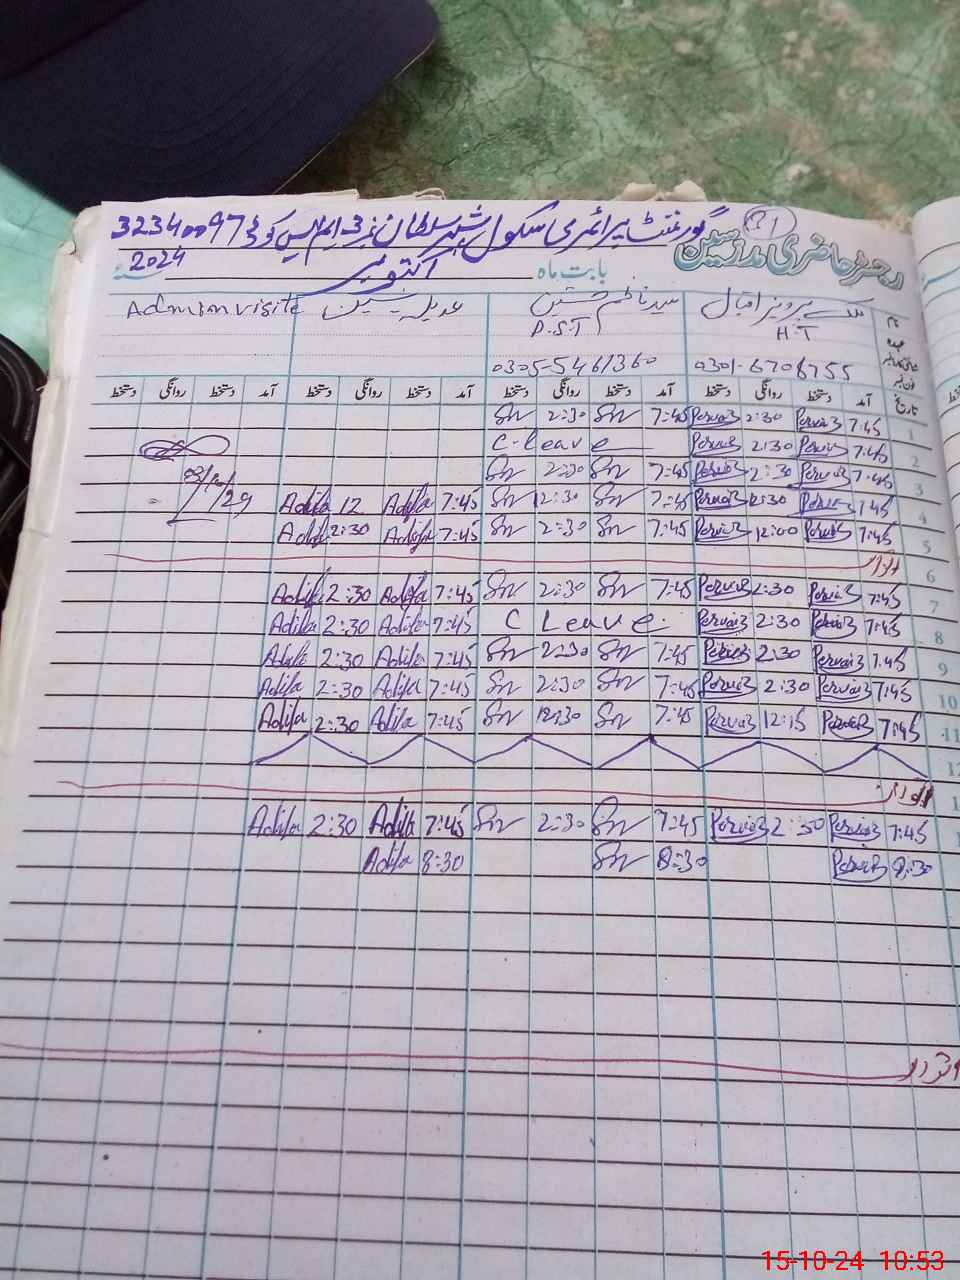 گورنمنٹ پرائمری سکول بشیر سلطان نمبر 3 ایم ایس کوڈ 32340097
رجسٹر حاضری مدرسین 31
بابت ماہ اکتوبر 2024
پرویز اقبال سید ناظم حسین عدیلہ یٰسین Admon visite
H.T P.S.T
0301-6708755 0305-5461360
تاریخ آمد دستخط روانگی دستخط آمد دستخط روانگی دستخط آمد دستخط روانگی دستخط آمد دستخط روانگی دستخط
1 7:45 Pervaiz 2:30 Pervaiz 7:45 Sn 2:30 Sn
2 7:45 Pervaiz 2:30 Pervaiz C-leave
3 7:45 Pervaiz 2:30 Pervaiz 7:45 Sn 2:30 Sn
4 7:45 Pervaiz 12:30 Pervaiz 7:45 Sn 12:30 Sn 7:45 Adila 12 Adila
5 7:45 Pervaiz 12:00 Pervaiz 7:45 Sn 2:30 Sn 7:45 Adila 2:30 Adila
6 اتوار
7 7:45 Pervaiz 2:30 Pervaiz 7:45 Sn 2:30 Sn 7:45 Adila 2:30 Adila
8 7:45 Pervaiz 2:30 Pervaiz C Leave. 7:45 Adila 2:30 Adila
9 7:45 Pervaiz 2:30 Pervaiz 7:45 Sn 2:30 Sn 7:45 Adila 2:30 Adila
10 7:45 Pervaiz 2:30 Pervaiz 7:45 Sn 2:30 Sn 7:45 Adila 2:30 Adila
11 7:45 Pervaiz 12:15 Pervaiz 7:45 Sn 12:30 Sn 7:45 Adila 2:30 Adila
12
اتوار
7:45 Pervaiz 2:30 Pervaiz 7:45 Sn 2:30 Sn 7:45 Adila 2:30 Adila
8:30 Pervaiz 8:30 Sn 8:30 Adila
اتوار
15-10-24 10:53